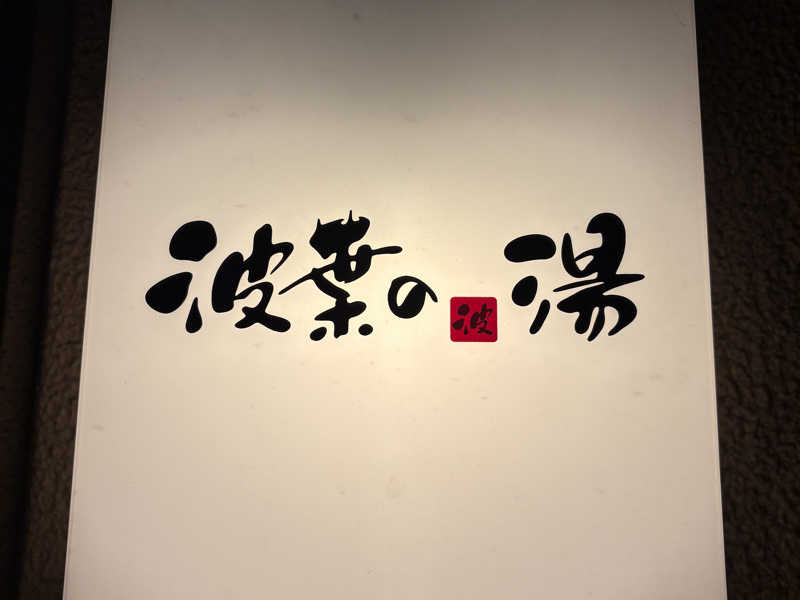 波葉の湯
波